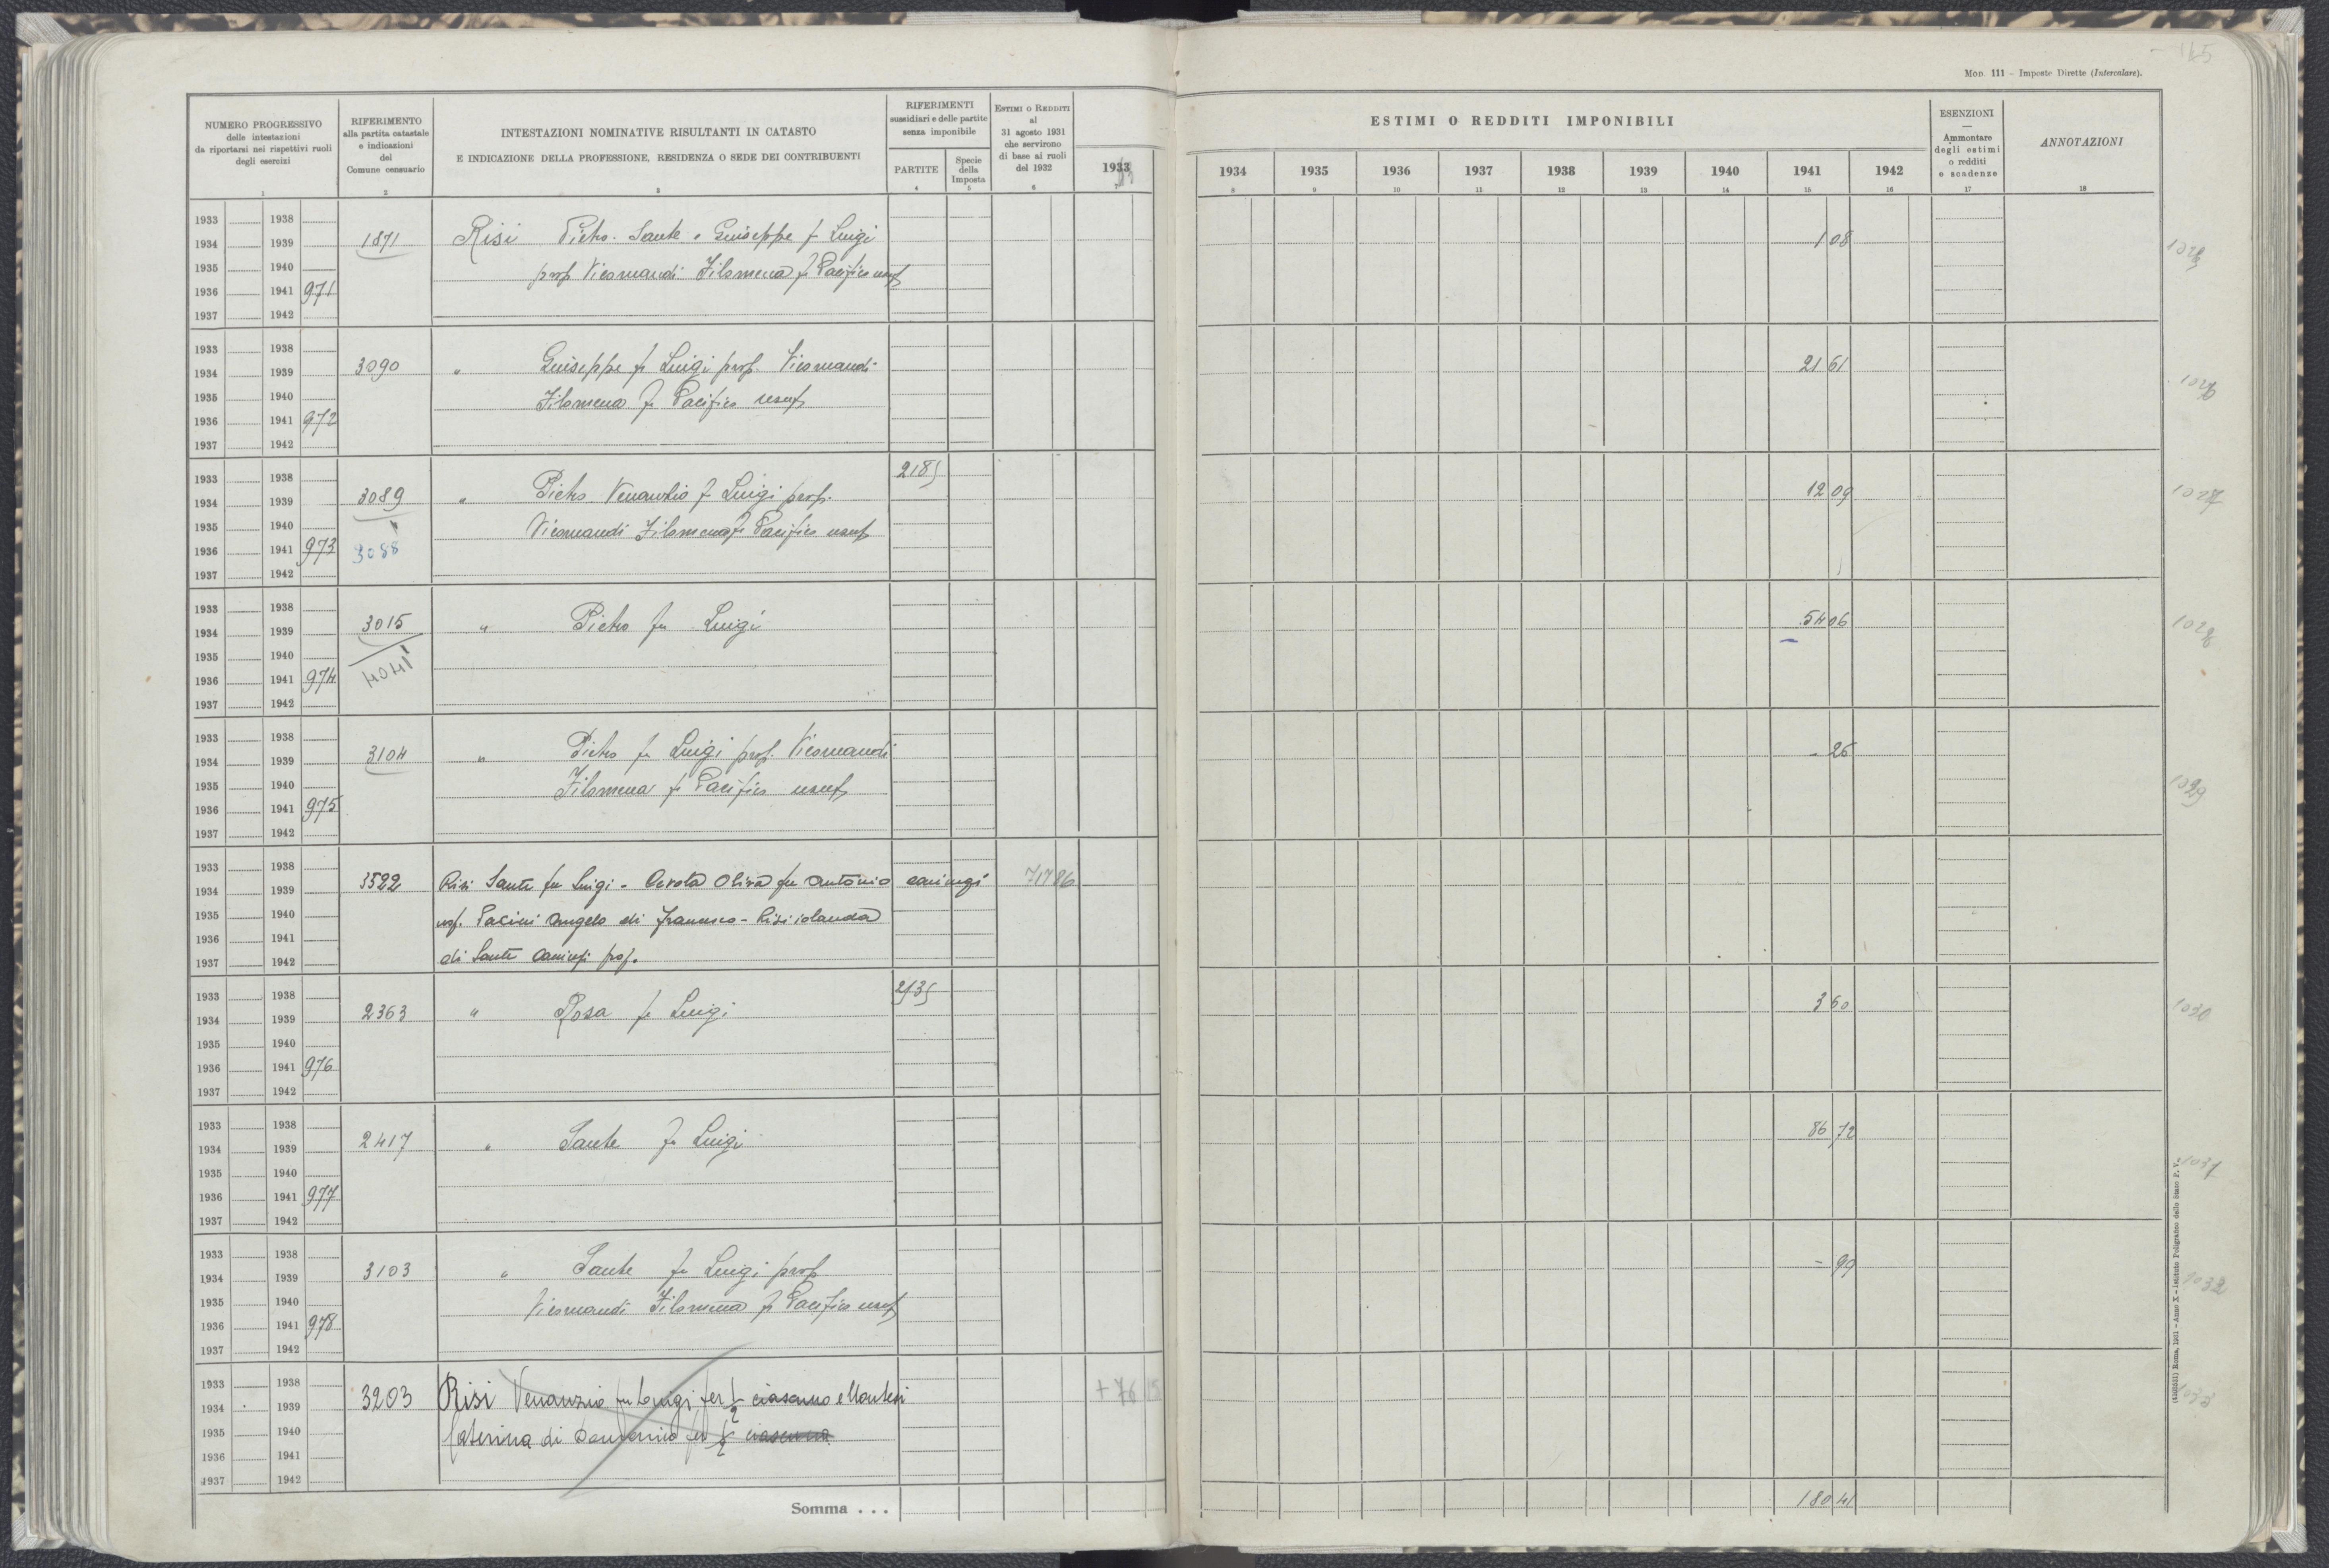 165
Mod. 111 - Imposte Dirette (Intercalare).
NUMERO PROGRESSIVO
delle intestazioni
da riportarsi nei rispettivi ruoli
degli esercizi
1
RIFERIMENTO
alla partita catastale
e indicazioni
del
Comune censuario
2
INTESTAZIONI NOMINATIVE RISULTANTI IN CATASTO
E INDICAZIONE DELLA PROFESSIONE, RESIDENZA O SEDE DEI CONTRIBUENTI
3
RIFERIMENTI
sussidiari e delle partite
senza imponibile
PARTITE
4
Specie
della
Imposta
5
Estimi o Redditi
al
31 agosto 1931
che servirono
di base ai ruoli
del 1932
6
1933
ESTIMI O REDDITI IMPONIBILI
1934 1935 1936 1937 1938 1939 1940 1941 1942
8 9 10 11 12 13 14 15 16
ESENZIONI
—
Ammontare
degli estimi
o redditi
e scadenze
17
ANNOTAZIONI
18
1933 1938
1934 1939 1871 Risi Pietro. Sante e Giuseppe fu Luigi 1 08
1935 1940 prop Vicomandi Filomena fu Pacifico usuf
1936 1941 971
1937 1942
1933 1938
1934 1939 3090 " Giuseppe fu Luigi prop. Vicomandi 21 61
1935 1940 Filomena fu Pacifico usuf
1936 1941 972
1937 1942
1933 1938 2185
1934 1939 3089 " Pietro Venanzio fu Luigi prop. 12 09 1027
1935 1940 Vicomandi Filomena fu Pacifico usuf
1936 1941 973 3088
1937 1942
1933 1938
1934 1939 3015 " Pietro fu Luigi 54 06
1935 1940
1936 1941 974 4041
1937 1942
1933 1938
1934 1939 3104 " Pietro fu Luigi prop. Vicomandi - 26
1935 1940 Filomena fu Pacifico usuf 1029
1936 1941 975
1937 1942
1933 1938
1934 1939 3522 Risi Sante fu Luigi - Oliva fu Antonio coniugi 717 86
1935 1940 usf. Pacini Angelo di Francesco - Risi iolanda
1936 1941
1937 1942 di Sante coniugi prop.
1933 1938 2535
1934 1939 2363 " Rosa fu Luigi 3 60 1030
1935 1940
1936 1941 976
1937 1942
1933 1938
1934 1939 2417 " Sante fu Luigi 86 72 1031
1935 1940
1936 1941 977
1937 1942
1933 1938
1934 1939 3103 " Sante fu Luigi prop - 99 1032
1935 1940 Vicomandi Filomena fu Pacifico usuf
1936 1941 978
1937 1942
1933 1938
1934 1939 3203 Risi Venanzio fu Luigi per 1/2 ciascuno e + 76 15 1033
1935 1940 Caterina di Domenico per 1/2 ciascuna
1936 1941
1937 1942
Somma . . . 180 41
Roma, 1931 - Anno X - Istituto Poligrafico dello Stato P. V.